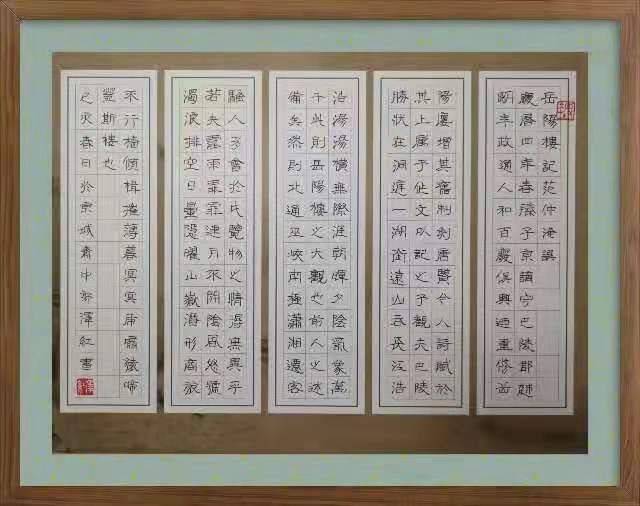 岳陽樓記范仲淹譔
慶曆四年春滕子京謫守巴陵郡越
明年政通人和百廢俱興廼重修岳
陽樓增其舊制刻唐賢今人詩賦於
其上屬予作文以記之予觀夫巴陵
勝狀在洞庭一湖銜遠山吞長江浩
浩湯湯橫無際涯朝暉夕陰氣象萬
千此則岳陽樓之大觀也前人之述
備矣然則北通巫峽南極瀟湘遷客
騷人多會於此覽物之情得無異乎
若夫霪雨霏霏連月不開陰風怒號
濁浪排空日星隱曜山嶽潛形商旅
不行檣傾楫摧薄暮冥冥虎嘯猿啼
登斯樓也
春日於京城齋中郭澤紅書